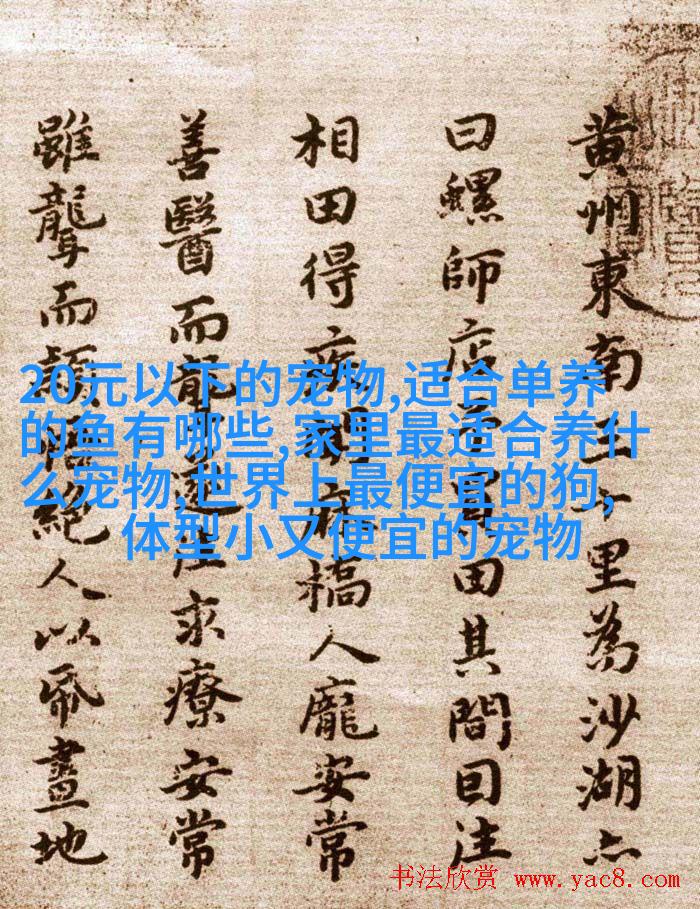 黃州東南三十里為沙湖亦
曰螺師店予買田其間因往
相田得疾聞麻橋人龐安常
善醫而聾遂往求療安常
雖聾而穎悟絕人以紙畫地
20元以下的宠物,适合单养
的鱼有哪些,家里最适合养什
么宠物,世界上最便宜的狗,
体型小又便宜的宠物
书法欣赏 www.yac8.com